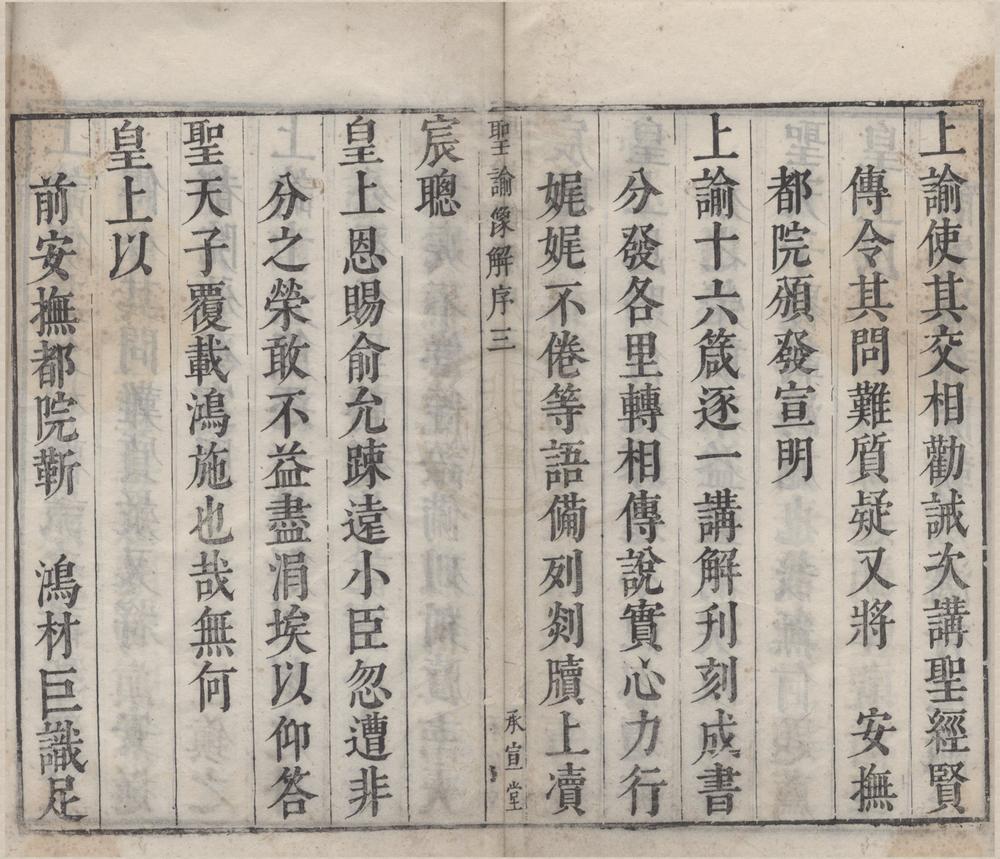 上諭使其交相勸誡次講聖經賢
傳令其問難質疑又將　安撫
都院頒發宣明
上諭十六箴逐一講解刋刻成書
分發各里轉相傳說實心力行
娓娓不倦等語備列剡牘上凟
聖諭像解序 三 承宣堂
宸聰
皇上恩賜俞允踈遠小臣忽遭非
分之榮敢不益盡涓埃以仰答
聖天子覆載鴻施也哉無何
皇上以
前安撫都院靳　鴻材巨識足